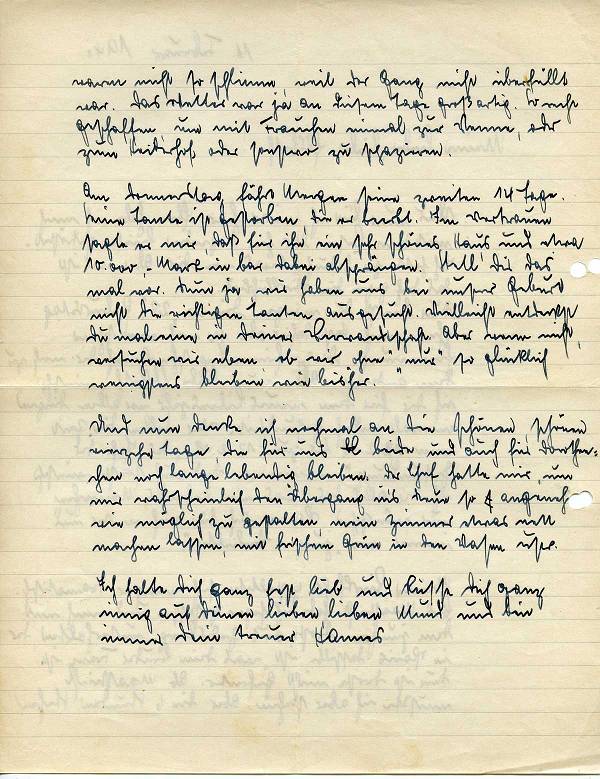 waren nicht so schlimm, weil der Gang nicht überfüllt
war. Das Wetter war ja an diesem Tage großartig. So recht
geschaffen um mit Frauchen einmal zur Venne, oder
zum oder zu spazieren.
Am Donnerstag fährt seine zweiten 14 Tage.
Seine Tante ist gestorben, die er beerbt. Im Vertrauen
sagte er mir daß für ihn ein sehr schönes Haus und etwa
10.000,- Mark in bar dabei abspringen. Stell' Dir das
mal vor. Nun ja wir haben uns bei unserer Geburt
nicht die richtigen Tanten ausgesucht. Vielleicht entdeckst
Du mal eine in Deiner Verwandtschaft. Aber wenn nicht,
versuchen wir eben ob wir ohne "nur" so glücklich
wenigstens bleiben wie bisher.
Und nun denke ich nochmal an die schönen, schönen
vierzehn Tage die für uns beide und auch für Dorthe-
chen noch lange lebendig bleiben. Der Chef hatte mir, um
mir wahrscheinlich den Übergang ins Neue so angenehm
wie möglich zu gestalten, mein Zimmer etwas nett
machen lassen, mit frischem Grün in den Vasen usw.
Ich halte Dich ganz fest lieb und küsse Dich ganz
innig auf Deinen lieben lieben Mund und bin
immer Dein treuer Hannes